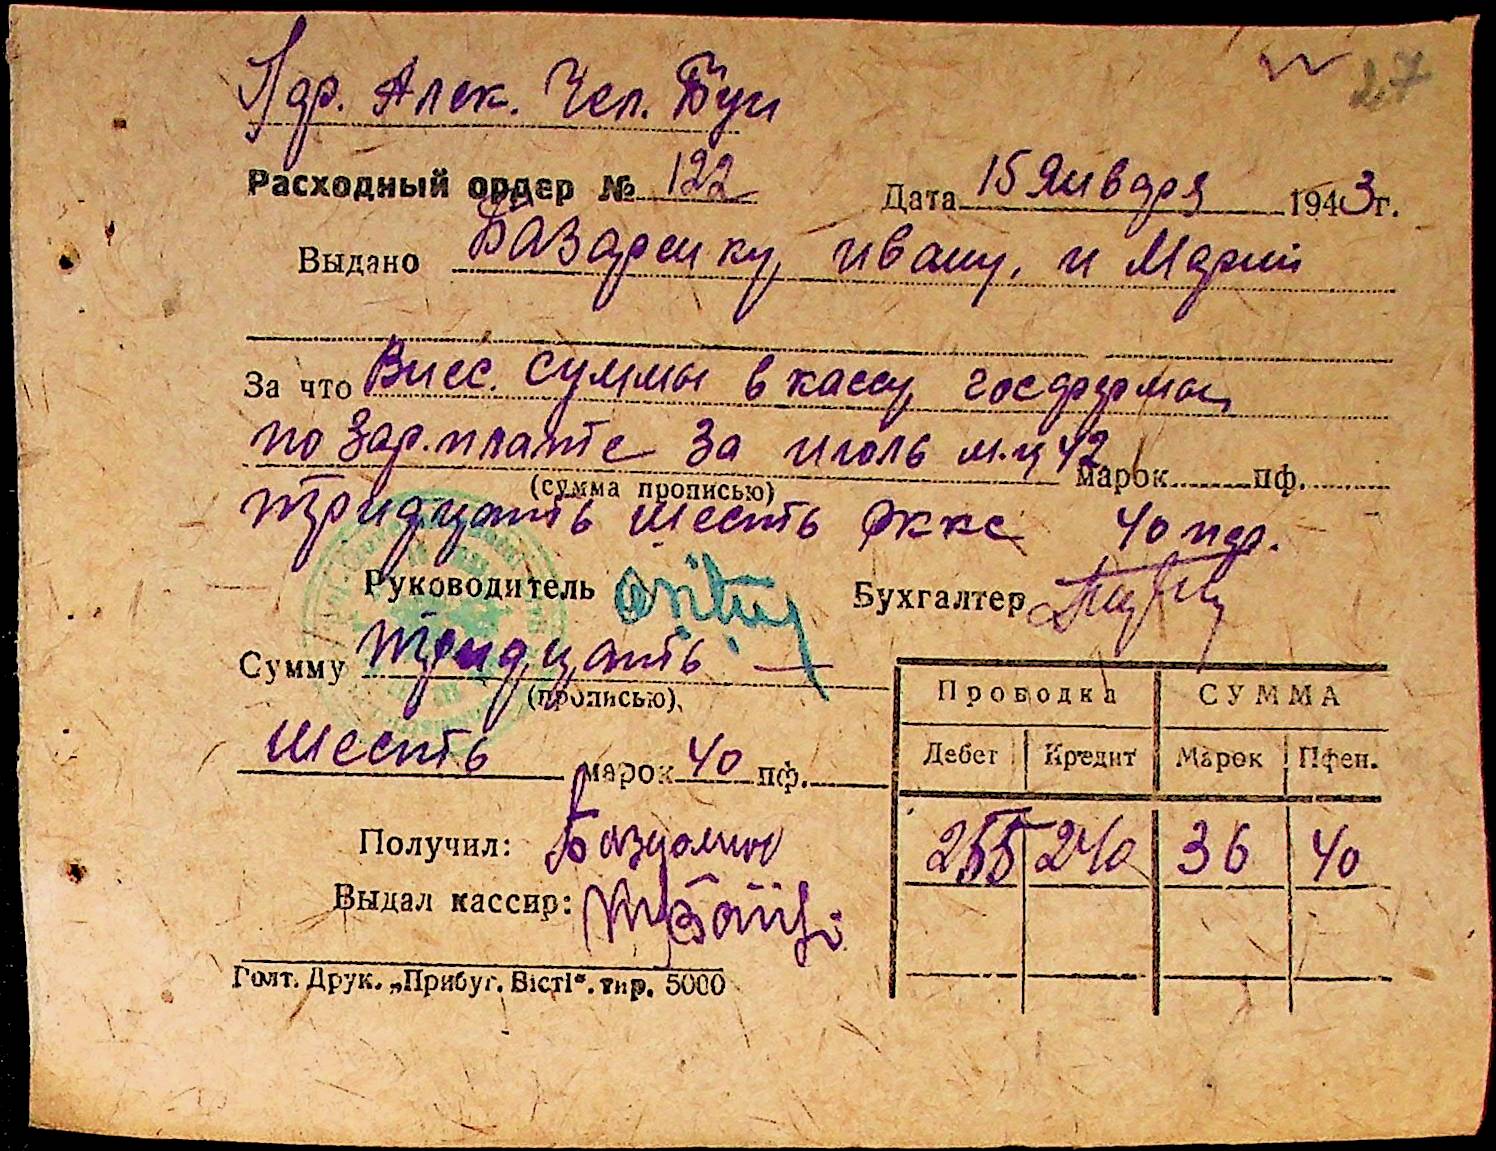 27
Алек. Чел.
Расходный ордер № 122 Дата 15 Января 1943г.
Выдано Базаренку, ивану, и Марии
За что Внес. суммы в кассу госфермы
по зар.плате за июль м.ц 42 марок пф.
(сумма прописью)
тридцать шесть рккс 40 пф.
Руководитель Бухгалтер
Сумму тридцать —
(прописью)
шесть марок 40 пф.
Проводка СУММА
Дебет Кредит Марок Пфен.
255 240 36 40
Получил:
Выдал кассир:
Голт. Друк. „Прибуг. Вісті“. тир. 5000